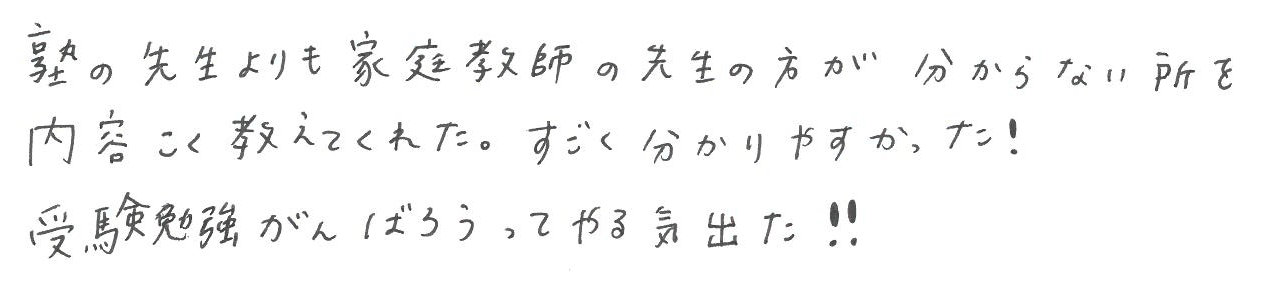 塾の先生よりも家庭教師の先生の方が分からない所を
内容こく教えてくれた。すごく分かりやすかった!
受験勉強がんばろうってやる気出た!!